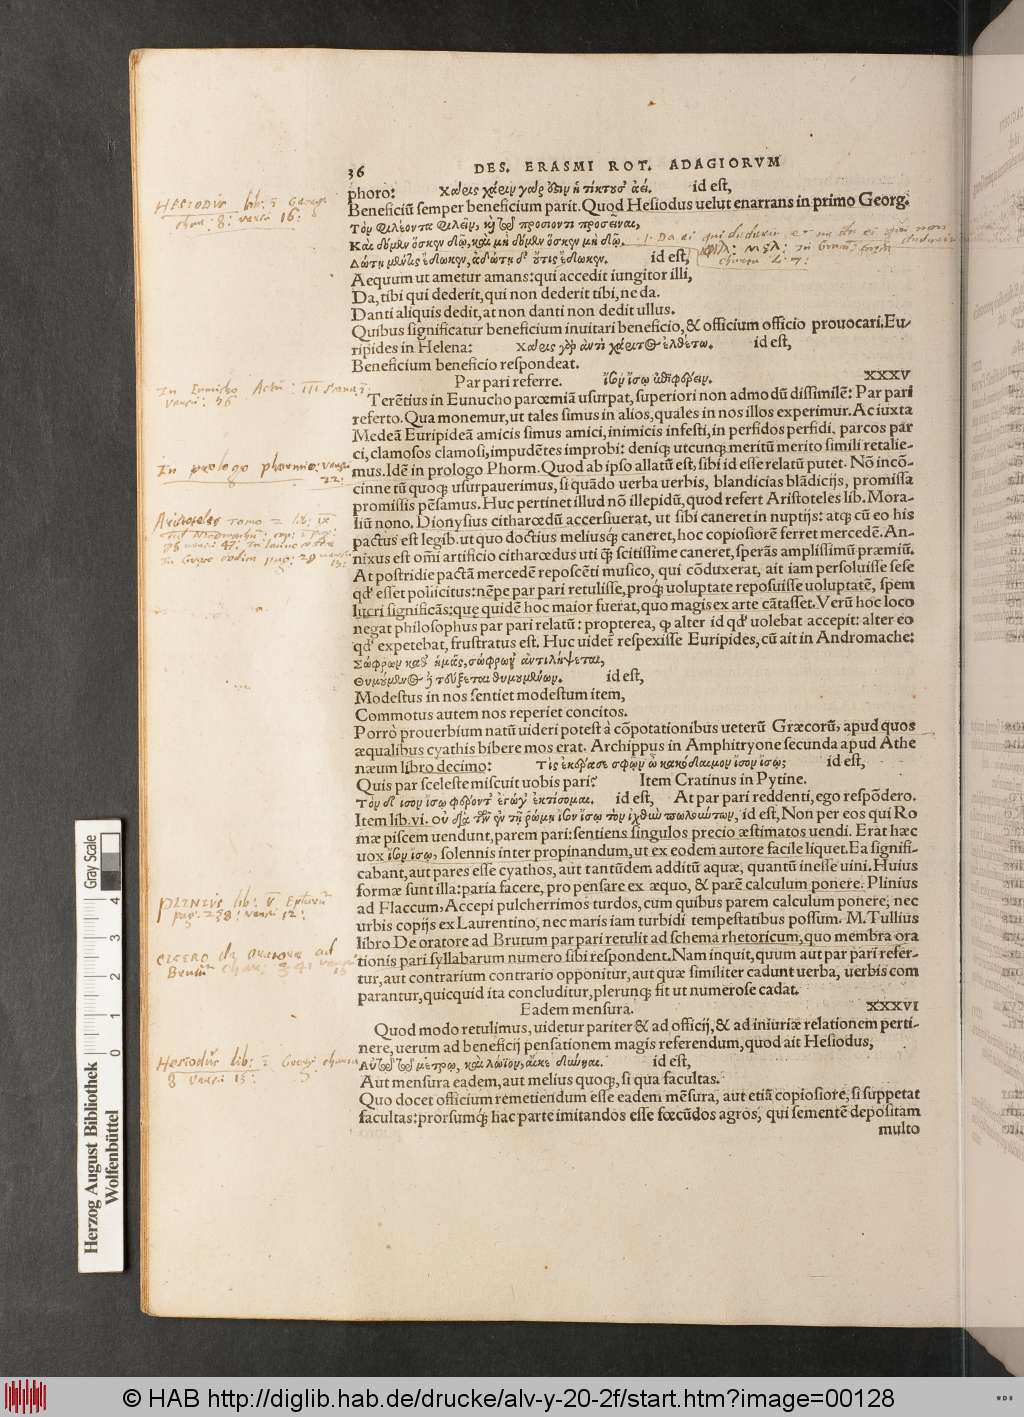 36 DES. ERASMI ROT. ADAGIORVM
phoro: Χάρις χάριν γαρ ὅζιν ἡ τίκτουσ᾽ ἀεί. id est,
Beneficiū semper beneficium parit. Quod Hesiodus uelut enarrans in primo Georg:
Τὸν φιλέοντα φιλεῖν, καὶ τῷ προσιόντι προσεῖναι,
Καὶ δόμεν ὅς κεν δῷ, καὶ μὴ δόμεν ὅς κεν μὴ δῷ.
Δώτῃ μέν τις ἔδωκεν, ἀδώτῃ δ᾽ οὔτις ἔδωκεν. id est,
Aequum ut ametur amans: qui accedit iungitor illi,
Da, tibi qui dederit, qui non dederit tibi, ne da.
Danti aliquis dedit, at non danti non dedit ullus.
Quibus significatur beneficium inuitari beneficio, & officium officio prouocari. Eu-
ripides in Helena: Χάρις γὰρ ἀντὶ χάριτος ἐλθέτω. id est,
Beneficium beneficio respondeat.
Par pari referre. ἴσον ἴσῳ ἐπιφέρειν. XXXV
Terētius in Eunucho parœmiā usurpat, superiori non admodū dissimilē: Par pari
referto. Qua monemur, ut tales simus in alios, quales in nos illos experimur. Ac iuxta
Medeā Euripideā amicis simus amici, inimicis infesti, in perfidos perfidi. parcos par
ci, clamosos clamosi, impudētes improbi: deniq; utcunq; meritū merito simili retalie-
mus. Idē in prologo Phorm. Quod ab ipso allatū est, sibi id esse relatū putet. Nō incō-
cinne tū quoq; usurpauerimus, si quādo uerba uerbis, blandicias blādicijs, promissa
promissis pēsamus. Huc pertinet illud nō illepidū, quod refert Aristoteles lib. Mora-
liū nono. Dionysius citharœdū accersiuerat, ut sibi caneret in nuptijs: atq; cū eo his
pactus est legib. ut quo doctius meliusq; caneret, hoc copiosiorē ferret mercedē. An-
nixus est om̄i artificio citharœdus uti q̄; scitissime caneret, sperās amplissimū præmiū.
At postridie pactā mercedē reposcēti musico, qui cōduxerat, ait iam persoluisse sese
qd' esset pollicitus: nēpe par pari retulisse, proq; uoluptate reposuisse uoluptatē, spem
lucri significās: que quidē hoc maior fuerat, quo magis ex arte cātasset. Verū hoc loco
negat philosophus par pari relatū: propterea, q̄ alter id qd' uolebat accepit: alter eo
qd' expetebat, frustratus est. Huc uidet̄ respexisse Euripides, cū ait in Andromache:
Σώφρων καθ᾽ ἡμᾶς, σώφρον᾽ ἀντιλήψεται,
Θυμούμενος δὲ τεύξεται θυμουμένων. id est,
Modestus in nos sentiet modestum item,
Commotus autem nos reperiet concitos.
Porrò prouerbium natū uideri potest à cōpotationibus ueterū Græcorū, apud quos
æqualibus cyathis bibere mos erat. Archippus in Amphitryone secunda apud Athe
næum libro decimo: Τίς ἐκέρασε σφῷν ὦ κακόδαιμον ἴσον ἴσῳ; id est,
Quis par sceleste miscuit uobis pari? Item Cratinus in Pytine.
Τὸν δ᾽ ἴσον ἴσῳ φέροντ᾽ ἐγὼ δ᾽ ἐκτίσομαι. id est, At par pari reddenti, ego respōdero.
Item lib. vi. οὐ διὰ τῶν ἐν τῇ ῥώμῃ ἴσον ἴσῳ τὸν ἰχθὺν πωλούντων, id est, Non per eos qui Ro
mæ piscem uendunt, parem pari: sentiens singulos precio æstimatos uendi. Erat hæc
uox ἴσον ἴσῳ, solennis inter propinandum, ut ex eodem autore facile liquet. Ea signifi-
cabant, aut pares esse cyathos, aut tantūdem additū aquæ, quantū inesse uini. Huius
formæ sunt illa: paria facere, pro pensare ex æquo, & parē calculum ponere. Plinius
ad Flaccum, Accepi pulcherrimos turdos, cum quibus parem calculum ponere, nec
urbis copijs ex Laurentino, nec maris iam turbidi tempestatibus possum. M. Tullius
libro De oratore ad Brutum par pari retulit ad schema rhetoricum, quo membra ora
tionis pari syllabarum numero sibi respondent. Nam inquit, quum aut par pari refer-
tur, aut contrarium contrario opponitur, aut quæ similiter cadunt uerba, uerbis com
parantur, quicquid ita concluditur, plerunq; fit ut numerose cadat.
Eadem mensura. XXXVI
Quod modo retulimus, uidetur pariter & ad officij, & ad iniuriæ relationem perti-
nere, uerum ad beneficij pensationem magis referendum, quod ait Hesiodus,
Αὐτῷ τῷ μέτρῳ, καὶ λώϊον, αἴκε δύνηαι. id est,
Aut mensura eadem, aut melius quoq;, si qua facultas.
Quo docet officium remetiendum esse eadem mēsura, aut etiā copiosiore, si suppetat
facultas: prorsumq; hac parte imitandos esse fœcūdos agros, qui sementē depositam
multo
HESIODUS lib: Georg:
char: 8: versu 16:
In Eunucho Actu: III
versu: 56
In prologo phormio: versu
22:
Aristoteles tomo 2 lib: IX
PLINIUS lib: V Epistu
pag: 238: versu 12:
CICERO de oratore ad
Brutum
Hesiodus lib: Georg: charta
8 versu 15:
Gray Scale
0 1 2 3 4
Herzog August Bibliothek
Wolfenbüttel
© HAB http://diglib.hab.de/drucke/alv-y-20-2f/start.htm?image=00128